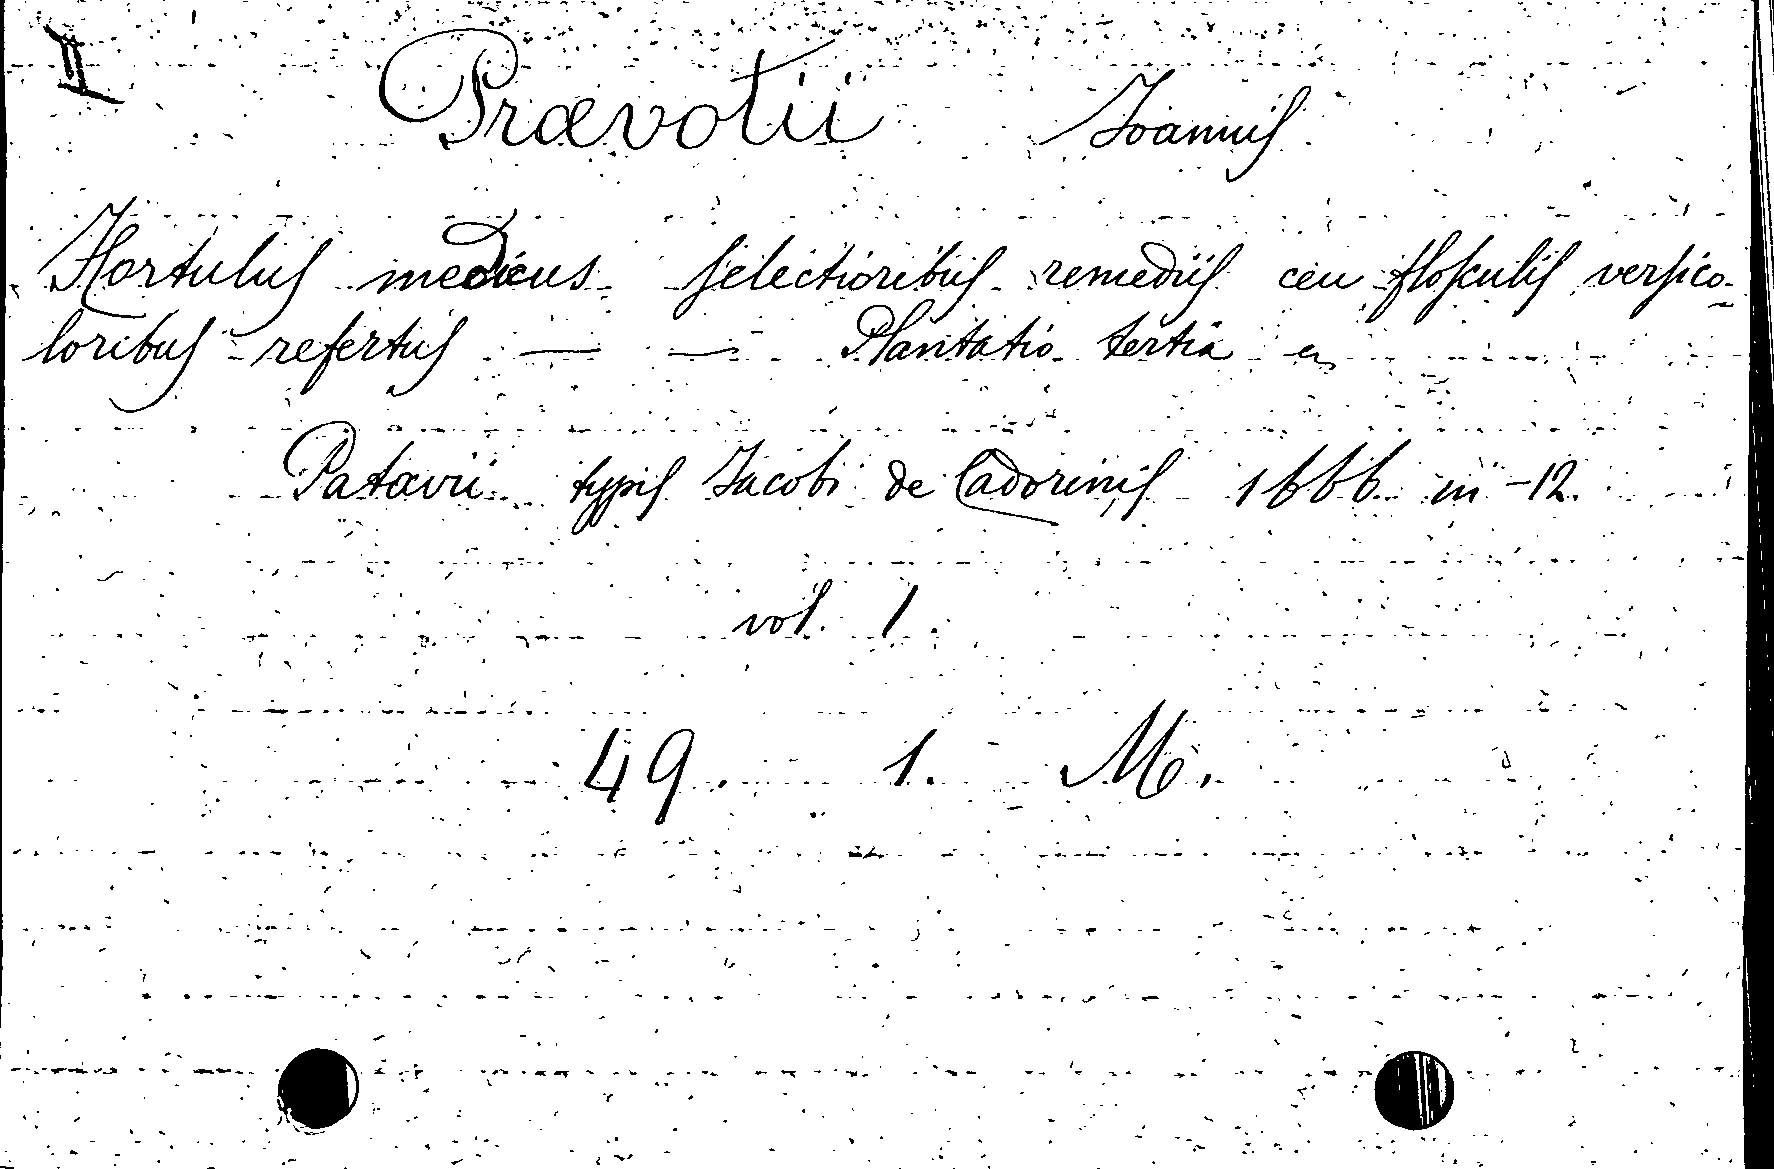 II
Prævotii Joannis
Hortulus medicus selectioribus remediis ceu flosculis versico-
loribus refertus — — Plantatio tertia
Patavii typis Jacobi de Cadorinis 1666 in -12.
vol. 1.
49. 1. M.